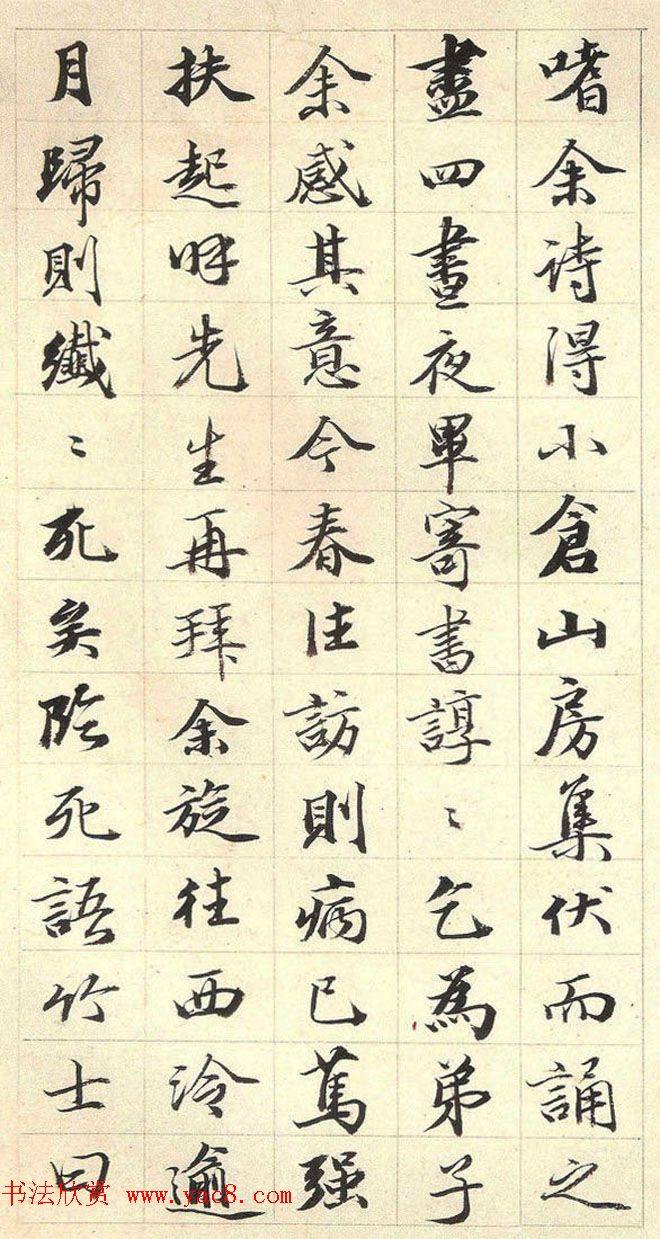 嗜余诗得小倉山房集伏而誦之
盡四晝夜畢寄書諄〻乞為弟子
余感其意今春往訪則病已篤强
扶起呼先生再拜余旋往西泠逾
月歸則纖〻死矣臨死語竹士曰
书法欣赏 www.yac8.com